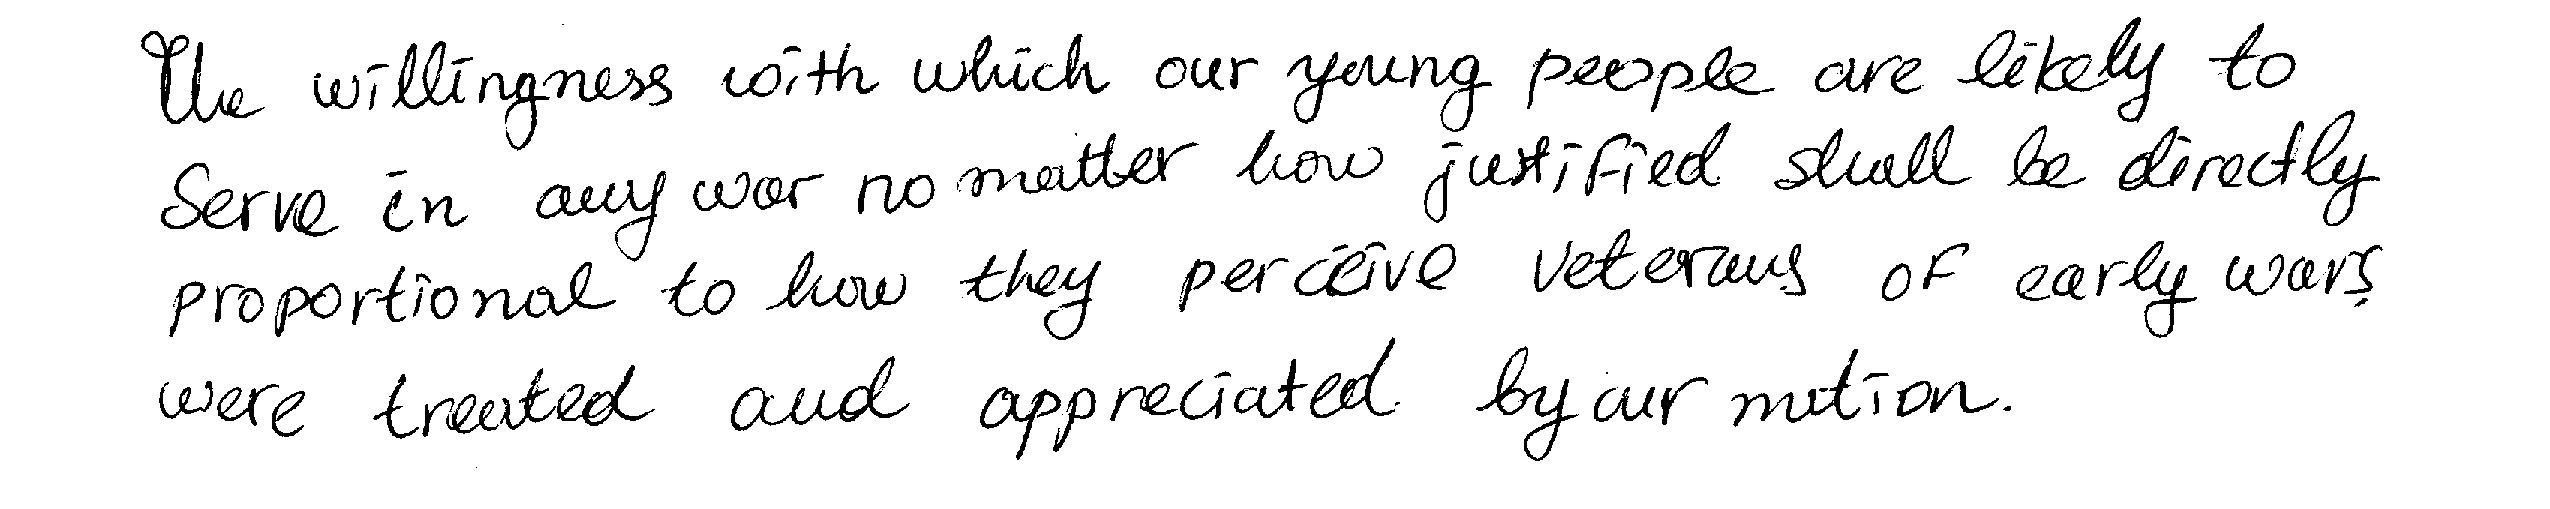 The willingness with which our young people are likely to
Serve in any war no matter how justified shall be directly
proportional to how they perceive veterans of early wars
were treated and appreciated by our nation.